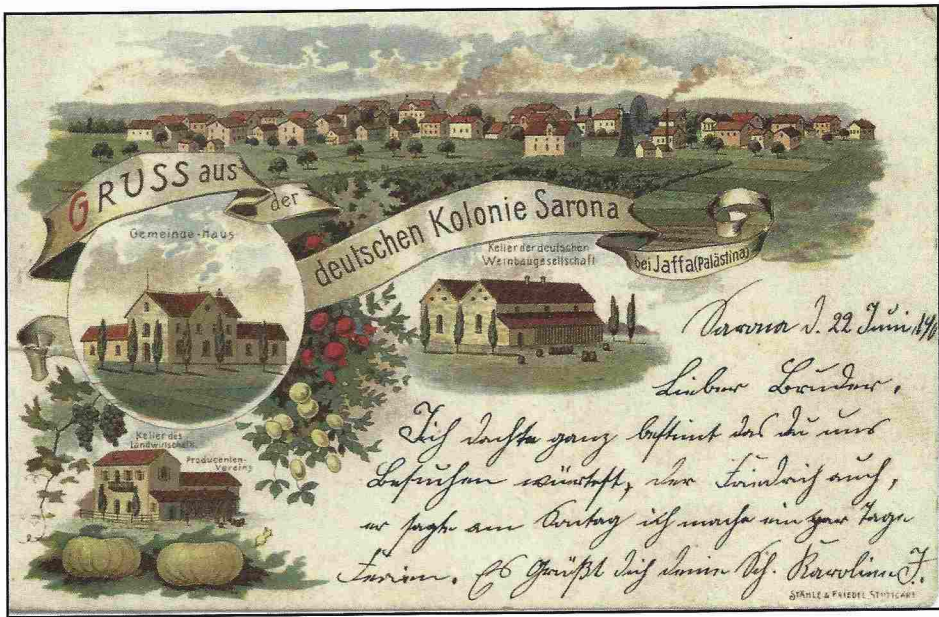 GRUSS aus
der
deutschen Kolonie Sarona
bei Jaffa (Palästina)
Gemeinde-Haus
Keller der deutschen
Weinbaugesellschaft
Keller des
Landwirtschaftl.
Producenten-
Vereins
Sarona d. 22 Juni
Lieber Bruder.
Ich dachte ganz bestimt das du uns
Besuchen würtest, der Friedrich auch,
er sagte am Sontag ich mache ein par Tage
Ferien. Es Grüßt dich deine Sch. Karoline J.
STÄHLE & FRIEDEL STUTTGART